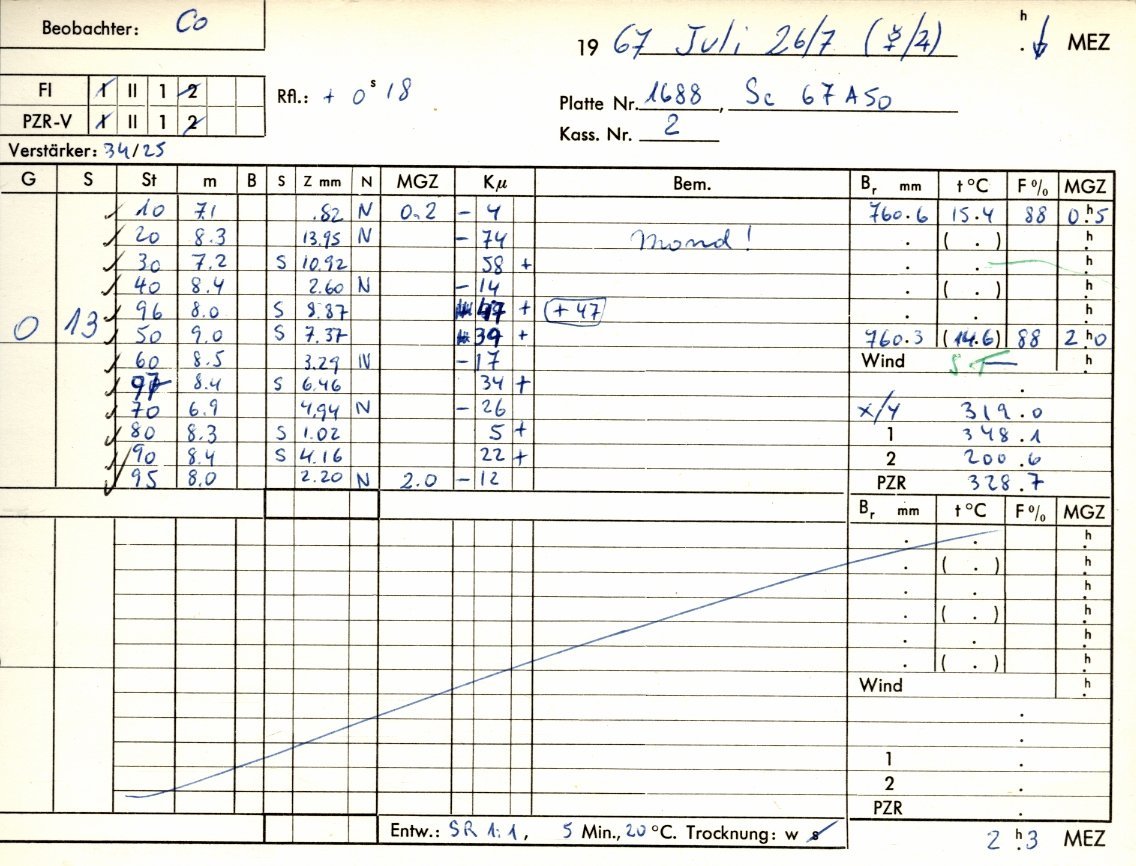 Beobachter: Co
19 67 Juli 26/7 (☿/♃) h . MEZ
FI I II 1 2
Rfl.: + 0 s 18
Platte Nr. 1688, Sc 67 A 50
PZR-V I II 1 2
Kass. Nr. 2
Verstärker: 34/25
G S St m B S Z mm N MGZ Kμ Bem. Br mm t °C F % MGZ
10 7.1 .82 N 0.2 - 4 760.6 15.4 88 0 h.5
20 8.3 13.95 N - 74 Mond! . ( . ) h.
30 7.2 S 10.92 58 + . . h.
40 8.4 2.60 N - 14 . ( . ) h.
96 8.0 S 8.87 47 + (+ 47) . . h.
0 13 50 9.0 S 7.37 39 + 760.3 (14.6) 88 2 h.0
60 8.5 3.29 N - 17 Wind h.
97 8.4 S 6.46 34 + .
70 6.9 4.94 N - 26 x/y 319.0
80 8.3 S 1.02 5 + 1 348.1
90 8.4 S 4.16 22 + 2 200.6
95 8.0 2.20 N 2.0 - 12 PZR 328.7
Br mm t °C F % MGZ
. . h.
. ( . ) h.
. . h.
. ( . ) h.
. . h.
. ( . ) h.
Wind h.
.
.
1 .
2 .
PZR .
Entw.: SR 1:1, 5 Min., 20 °C. Trocknung: w s
2 h.3 MEZ